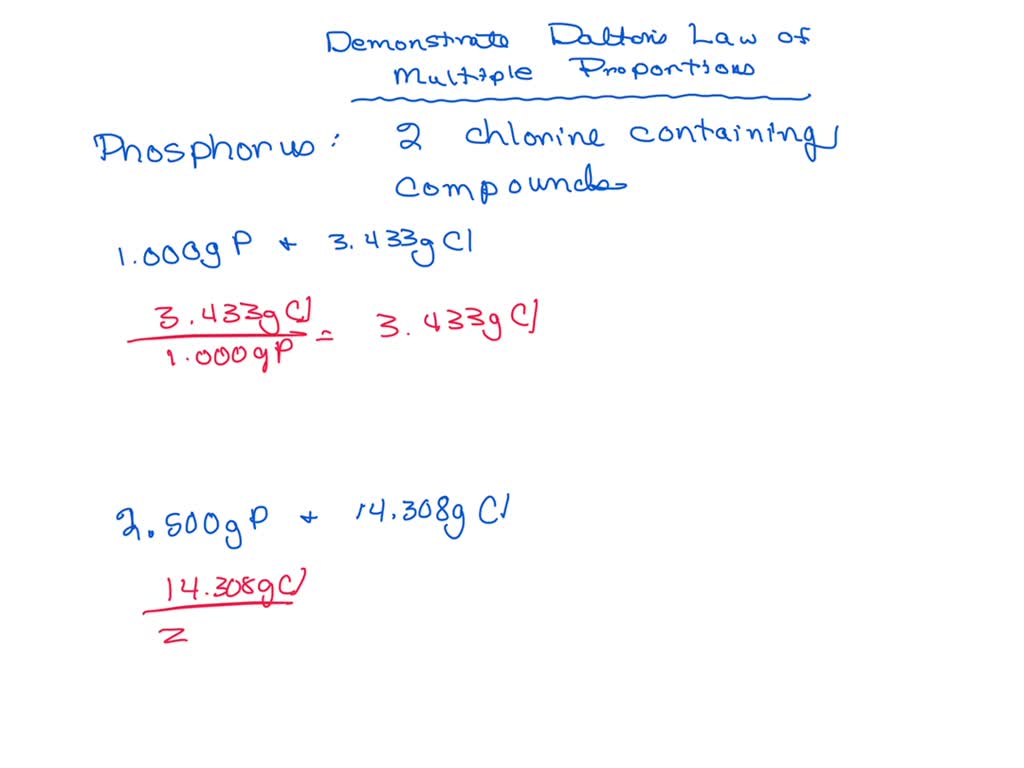 Demonstrate Dalton's Law of
Multiple Proportions
Phosphorus: 2 chlorine containing
compounds
1.000g P + 3.433g Cl
3.433g Cl
1.000g P
= 3.433g Cl
2.500g P + 14.308g Cl
14.308g Cl
2